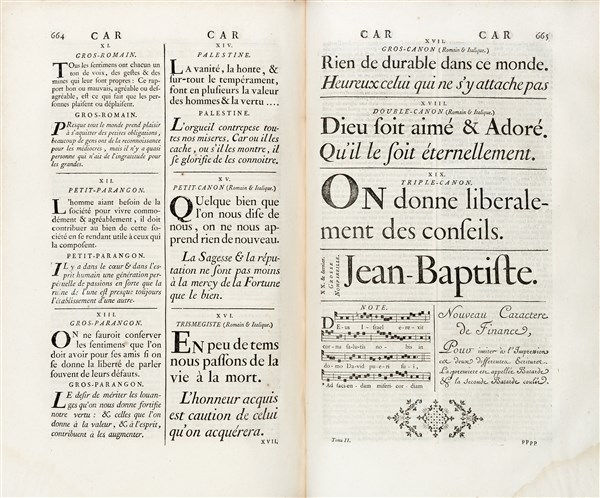 664
CAR
XI.
GROS-ROMAIN.
TOus les sentimens ont chacun un
ton de voix, des gestes & des
mines qui leur sont propres: Ce rap-
port bon ou mauvais, agréable ou des-
agréable, est ce qui fait que les per-
sonnes plaisent ou déplaisent.
GROS-ROMAIN.
PResque tout le monde prend plaisir
à s'aquitter des petites obligations,
beaucoup de gens ont de la reconnoissance
pour les médiocres, mais il n'y a quasi
personne qui n'ait de l'ingratitude pour
les grandes.
XII.
PETIT-PARANGON.
L'homme aiant besoin de la
société pour vivre commo-
dément & agréablement, il doit
contribuer au bien de cette so-
ciété en se rendant utile à ceux qui
la composent.
PETIT-PARANGON.
IL y a dans le cœur & dans l'es-
prit humain une génération per-
pétuelle de passions en sorte que la
ruine de l'une est presque toujours
l'établissement d'une autre.
XIII.
GROS-PARANGON.
ON ne sauroit conserver
les sentimens que l'on
doit avoir pour ses amis si on
se donne la liberté de parler
souvent de leurs défauts.
GROS-PARANGON.
LE desir de mériter les louan-
ges qu'on nous donne fortifie
notre vertu: & celles que l'on
donne à la valeur, & à l'esprit,
contribuent à les augmenter.
CAR
XIV.
PALESTINE.
LA vanité, la honte, &
sur-tout le tempérament,
font en plusieurs la valeur
des hommes & la vertu ....
PALESTINE.
L'orgueil contrepese tou-
tes nos miseres. Car ou il les
cache, ou s'il les montre, il
se glorifie de les connoitre.
XV.
PETIT-CANON (Romain & Italique.)
QUelque bien que
l'on nous dise de
nous, on ne nous ap-
prend rien de nouveau.
La Sagesse & la répu-
tation ne sont pas moins
à la mercy de la Fortune
que le bien.
XVI.
TRISMEGISTE (Romain & Italique.)
EN peu de tems
nous passons de la
vie à la mort.
L'honneur acquis
est caution de celui
qu'on acquérera.
XVII.
CAR
CAR
665
XVII.
GROS-CANON (Romain & Italique.)
Rien de durable dans ce monde.
Heureux celui qui ne s'y attache pas
XVIII.
DOUBLE-CANON (Romain & Italique.)
Dieu soit aimé & Adoré.
Qu'il le soit éternellement.
XIX.
TRIPLE-CANON.
ON donne liberale-
ment des conseils.
XX. & dernier.
GROSSE
NOMPAREILLE.
Jean-Baptiste.
NOTE.
DE-us Israel
bis in
* Ad faciendam misericordiam
Nouveau Caractere
de Finance,
Pour imiter à l'Impression
les deux differentes Ecritures
La premiere est appellée Batarde
& la seconde Batarde coulée.
Tome II.
PPPP